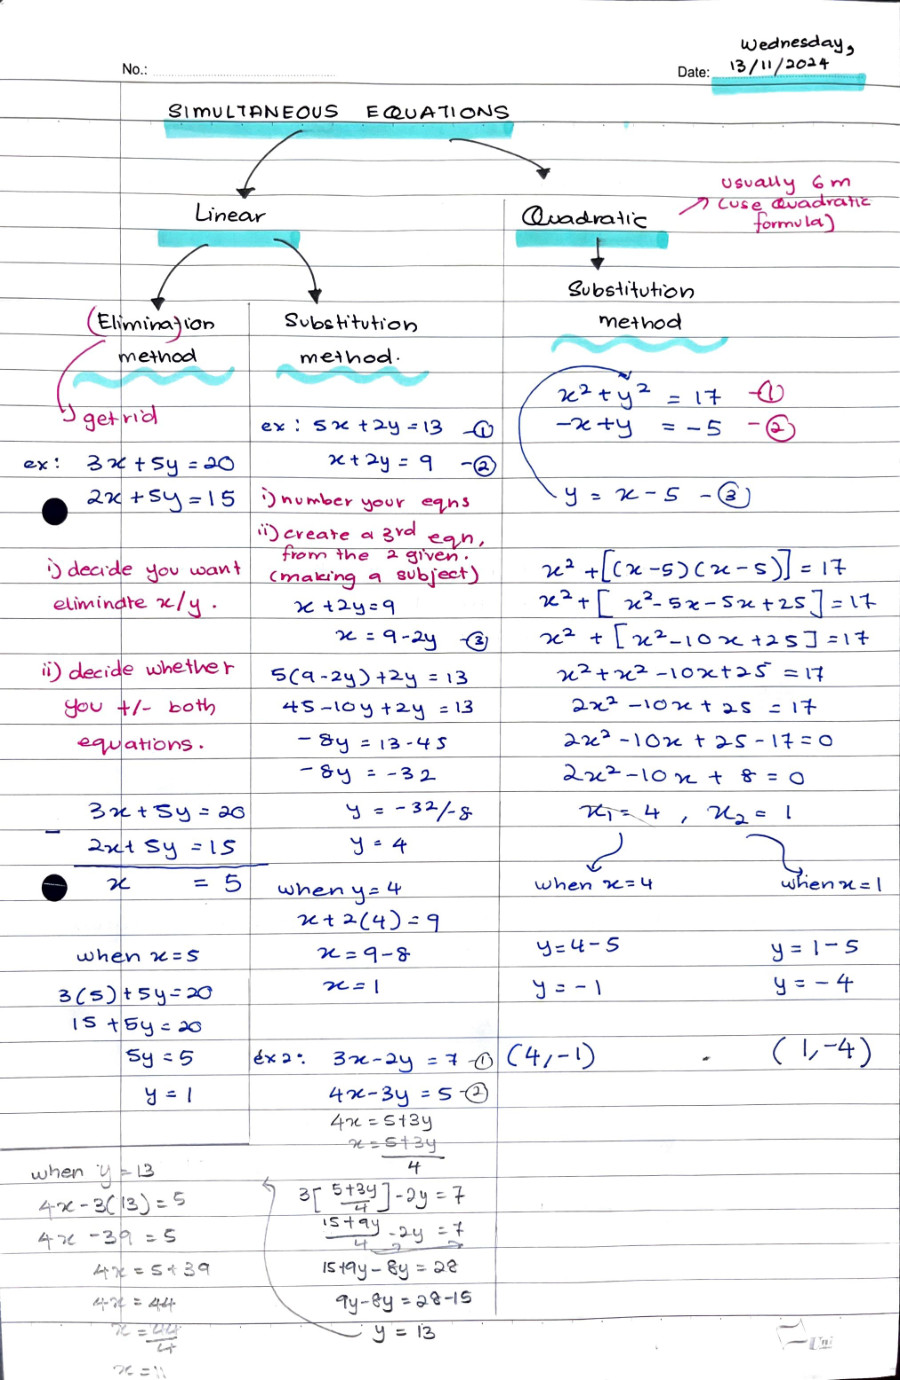 No.:
Wednesday,
Date: 13/11/2024
SIMULTANEOUS EQUATIONS
Linear
Quadratic
usually 6m
(use Quadratic
formula)
(Elimination)
method
getrid
ex: 3x+5y=20
2x+5y=15
i) decide you want
eliminate x/y.
ii) decide whether
you +/- both
equations.
3x+5y=20
- 2x+5y=15
x = 5
when x=5
3(5)+5y=20
15+5y=20
5y=5
y=1
Substitution
method.
ex: 5x+2y=13 -①
x+2y=9 -②
i) number your eqns
ii) create a 3rd eqn,
from the 2 given.
(making a subject)
x+2y=9
x=9-2y -③
5(9-2y)+2y=13
45-10y+2y=13
-8y=13-45
-8y=-32
y=-32/-8
y=4
when y=4
x+2(4)=9
x=9-8
x=1
ex2: 3x-2y=7 -①
4x-3y=5 -②
4x=5+3y
x=5+3y
4
3[5+3y/4]-2y=7
15+9y/4-2y=7
15+9y-8y=28
9y-8y=28-15
y=13
when y=13
4x-3(13)=5
4x-39=5
4x=5+39
4x=44
x=44
4
x=11
Substitution
method
x²+y²=17 -①
-x+y=-5 -②
y=x-5 -③
x²+[(x-5)(x-5)]=17
x²+[x²-5x-5x+25]=17
x²+[x²-10x+25]=17
x²+x²-10x+25=17
2x²-10x+25=17
2x²-10x+25-17=0
2x²-10x+8=0
x₁=4, x₂=1
when x=4
y=4-5
y=-1
(4,-1)
when x=1
y=1-5
y=-4
(1,-4)